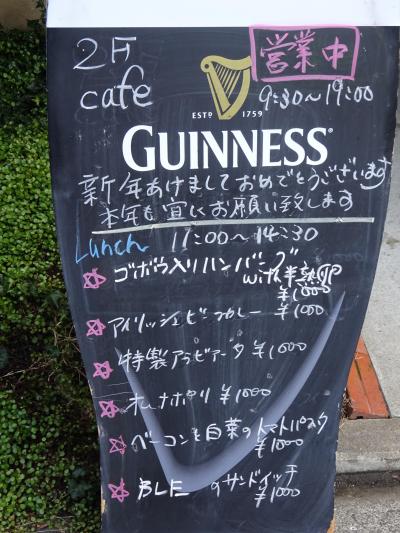 2F
営業中
cafe
9:30〜19:00
ESTD 1759
GUINNESS
新年あけましておめでとうございます
本年も宜しくお願い致します
Lunch 11:00〜14:30
ゴボウ入りハンバーグ
with半熟卵
¥1000
アイリッシュビーフカレー ¥1000
特製アラビアータ ¥1000
¥1000
ベーコンと白菜のトマトパスタ
¥1000
BLE のサンドイッチ
¥1000